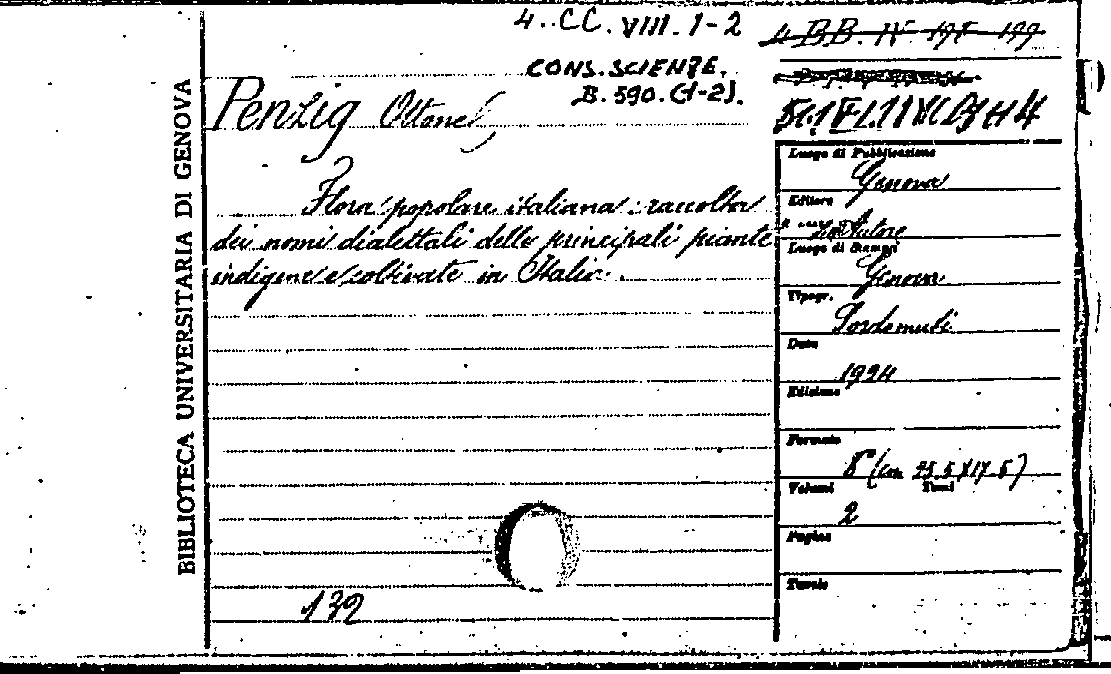 4..CC.VIII.1-2
4 BB. IV. 198-199
CONS.SCIENZE.
B.590.(1-2).
BIBLIOTECA UNIVERSITARIA DI GENOVA
Penzig Ottone
Flora popolare italiana: raccolta
dei nomi dialettali delle principali piante
indigene e coltivate in Italia.
132
Luogo di Pubblicazione
Genova
Editore
Autore
Luogo di Stampa
Genova
Tipogr.
Data
1924
Edizione
Formato
8° (cm 25.5 X 17.5)
Volumi Tomi
2
Pagine
Tavole